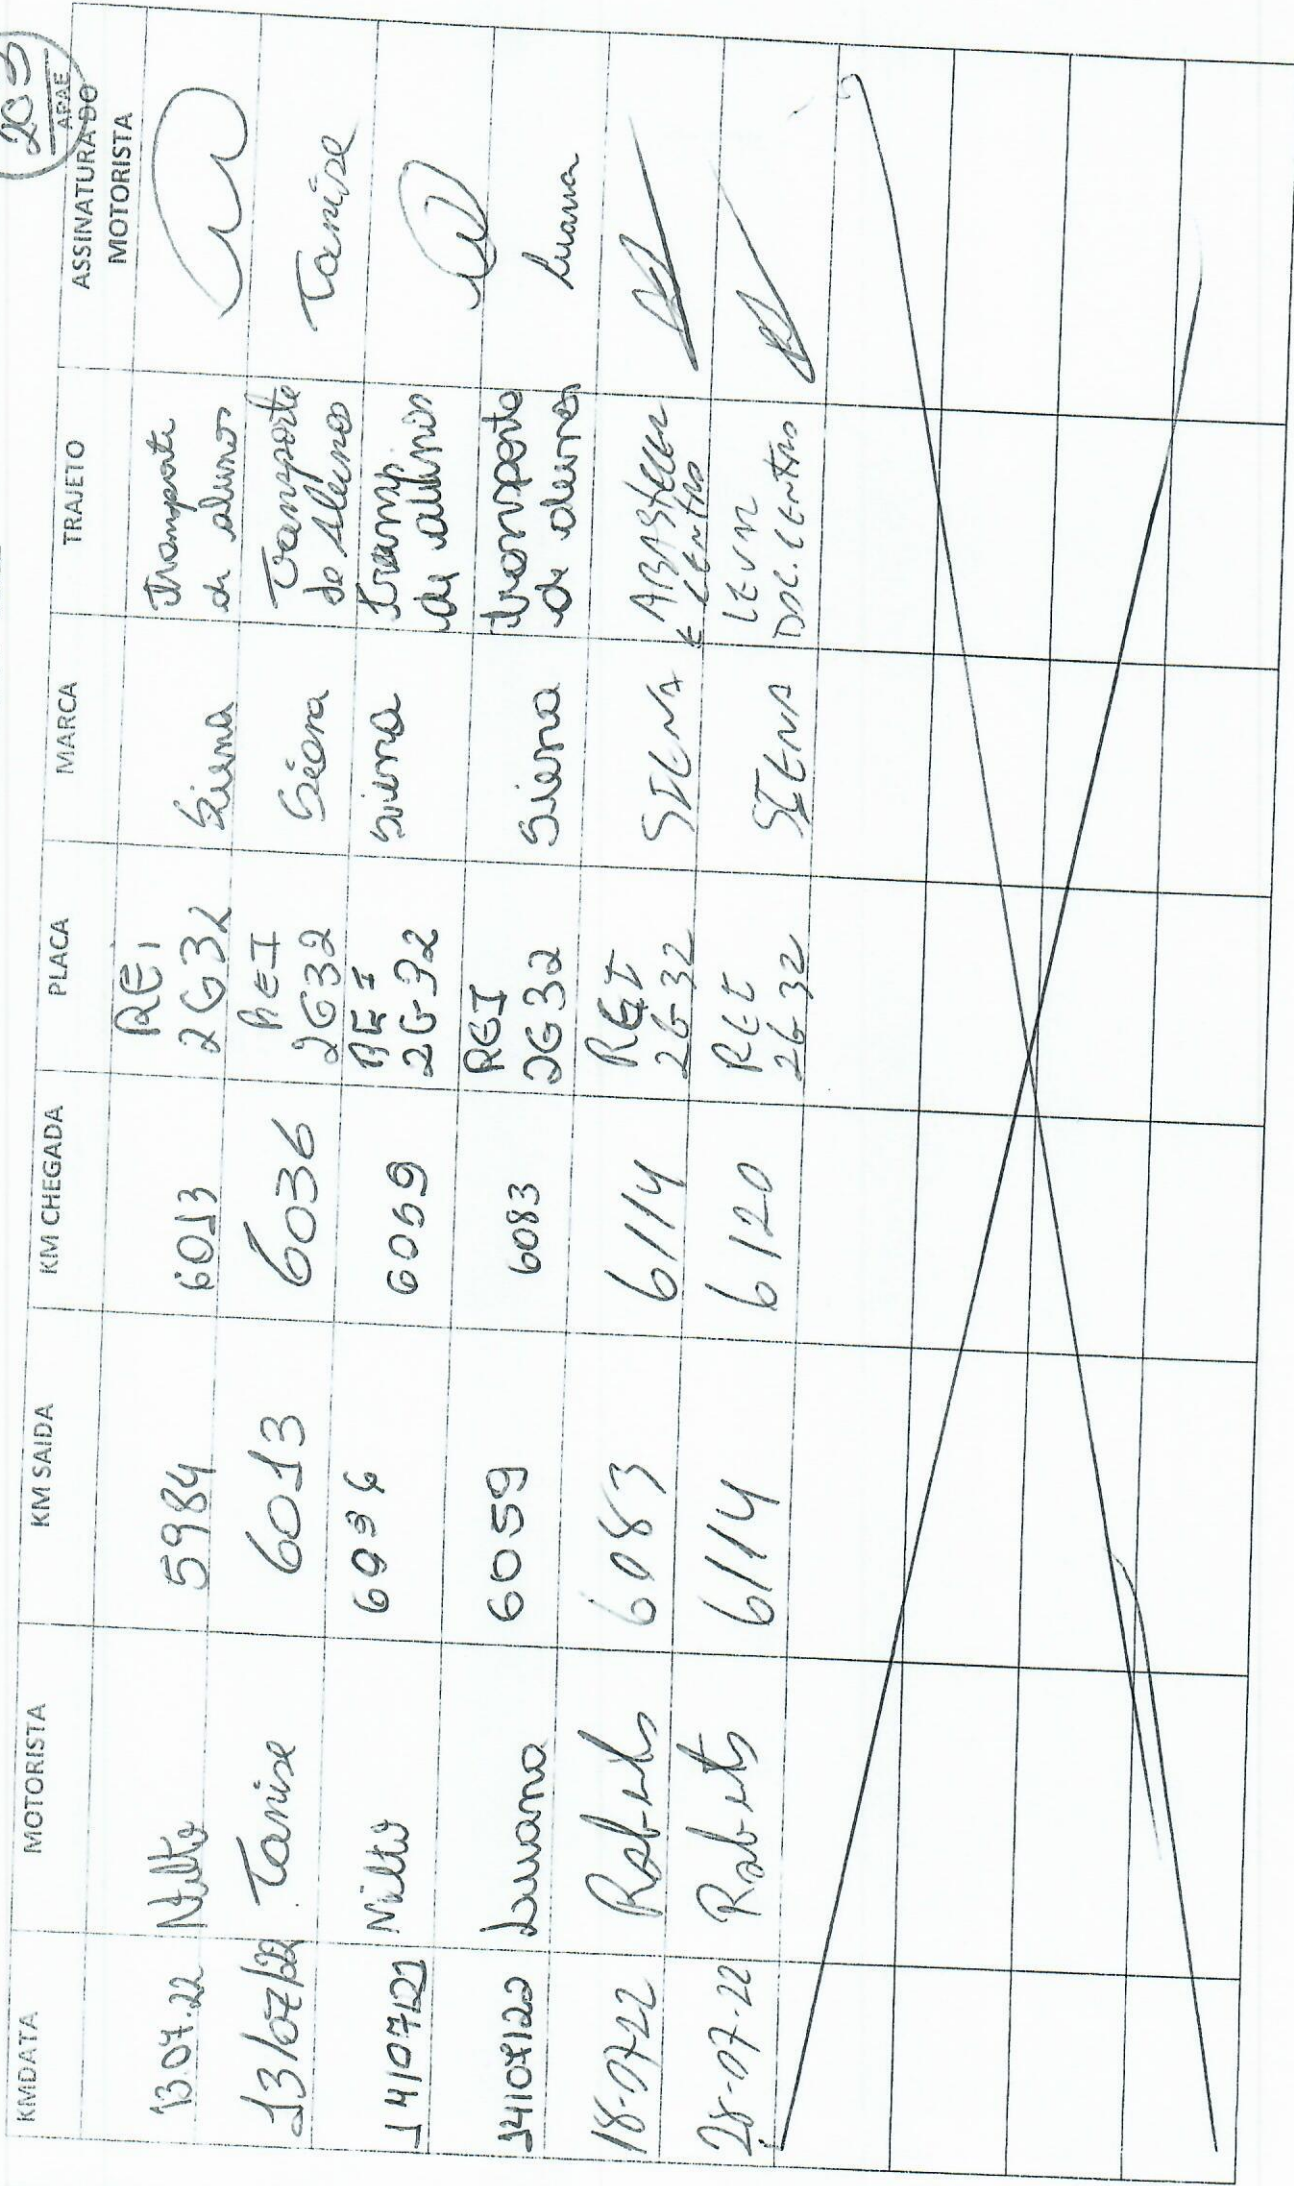 203
APAE
KMDATA MOTORISTA KM SAIDA KM CHEGADA PLACA MARCA TRAJETO ASSINATURA DO
MOTORISTA
13.07.22 Nilto 5984 6013 REI
2G32 Siena Transporte
de alunos
13/07/22 Tanise 6013 6036 REI
2G32 Siena Transporte
de Alunos Tanise
14/07/22 Nilto 6036 6059 REI
2G32 Siena Transp
de alunos
14/07/22 Luana 6059 6083 REI
2G32 Siena transporte
de alunos Luana
18-07-22 Roberto 6083 6114 REI
2G32 SIENA ABASTECER
E CENTRO
28-07-22 Roberto 6114 6120 REI
2G32 SIENA LEVAR
DOC. CENTRO